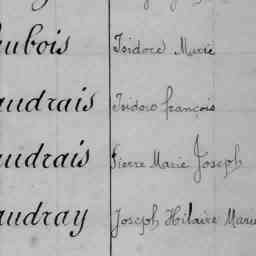 ubois Isidore Marie
audrais Isidore françois
audrais Pierre Marie Joseph
audray Joseph Hilaire Marie